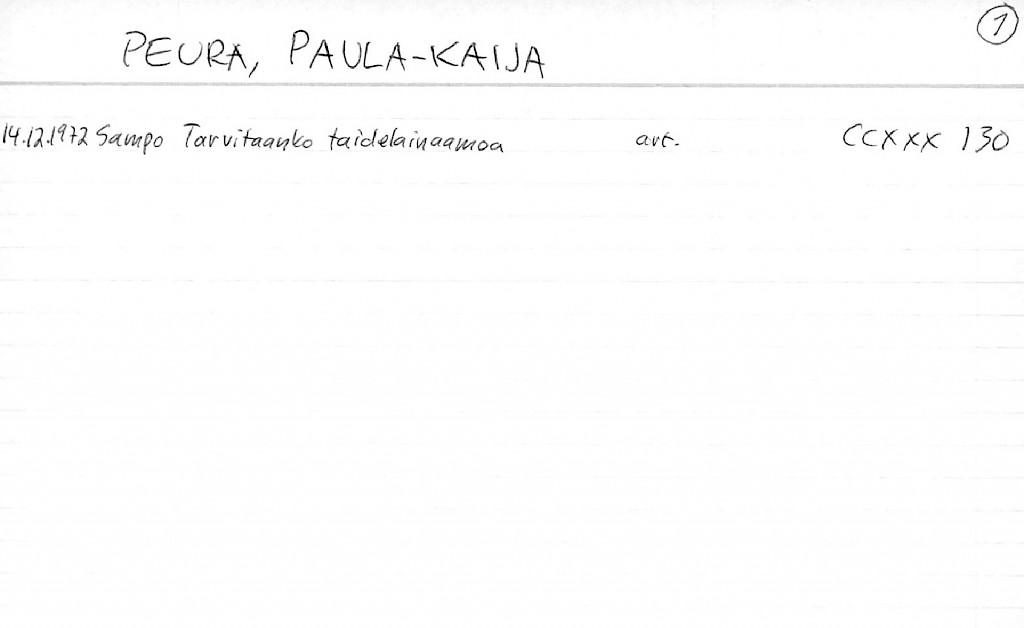 1
PEURA, PAULA-KAIJA
14.12.1972 Sampo Tarvitaanko taidelainaamoa art. CCXXX 130